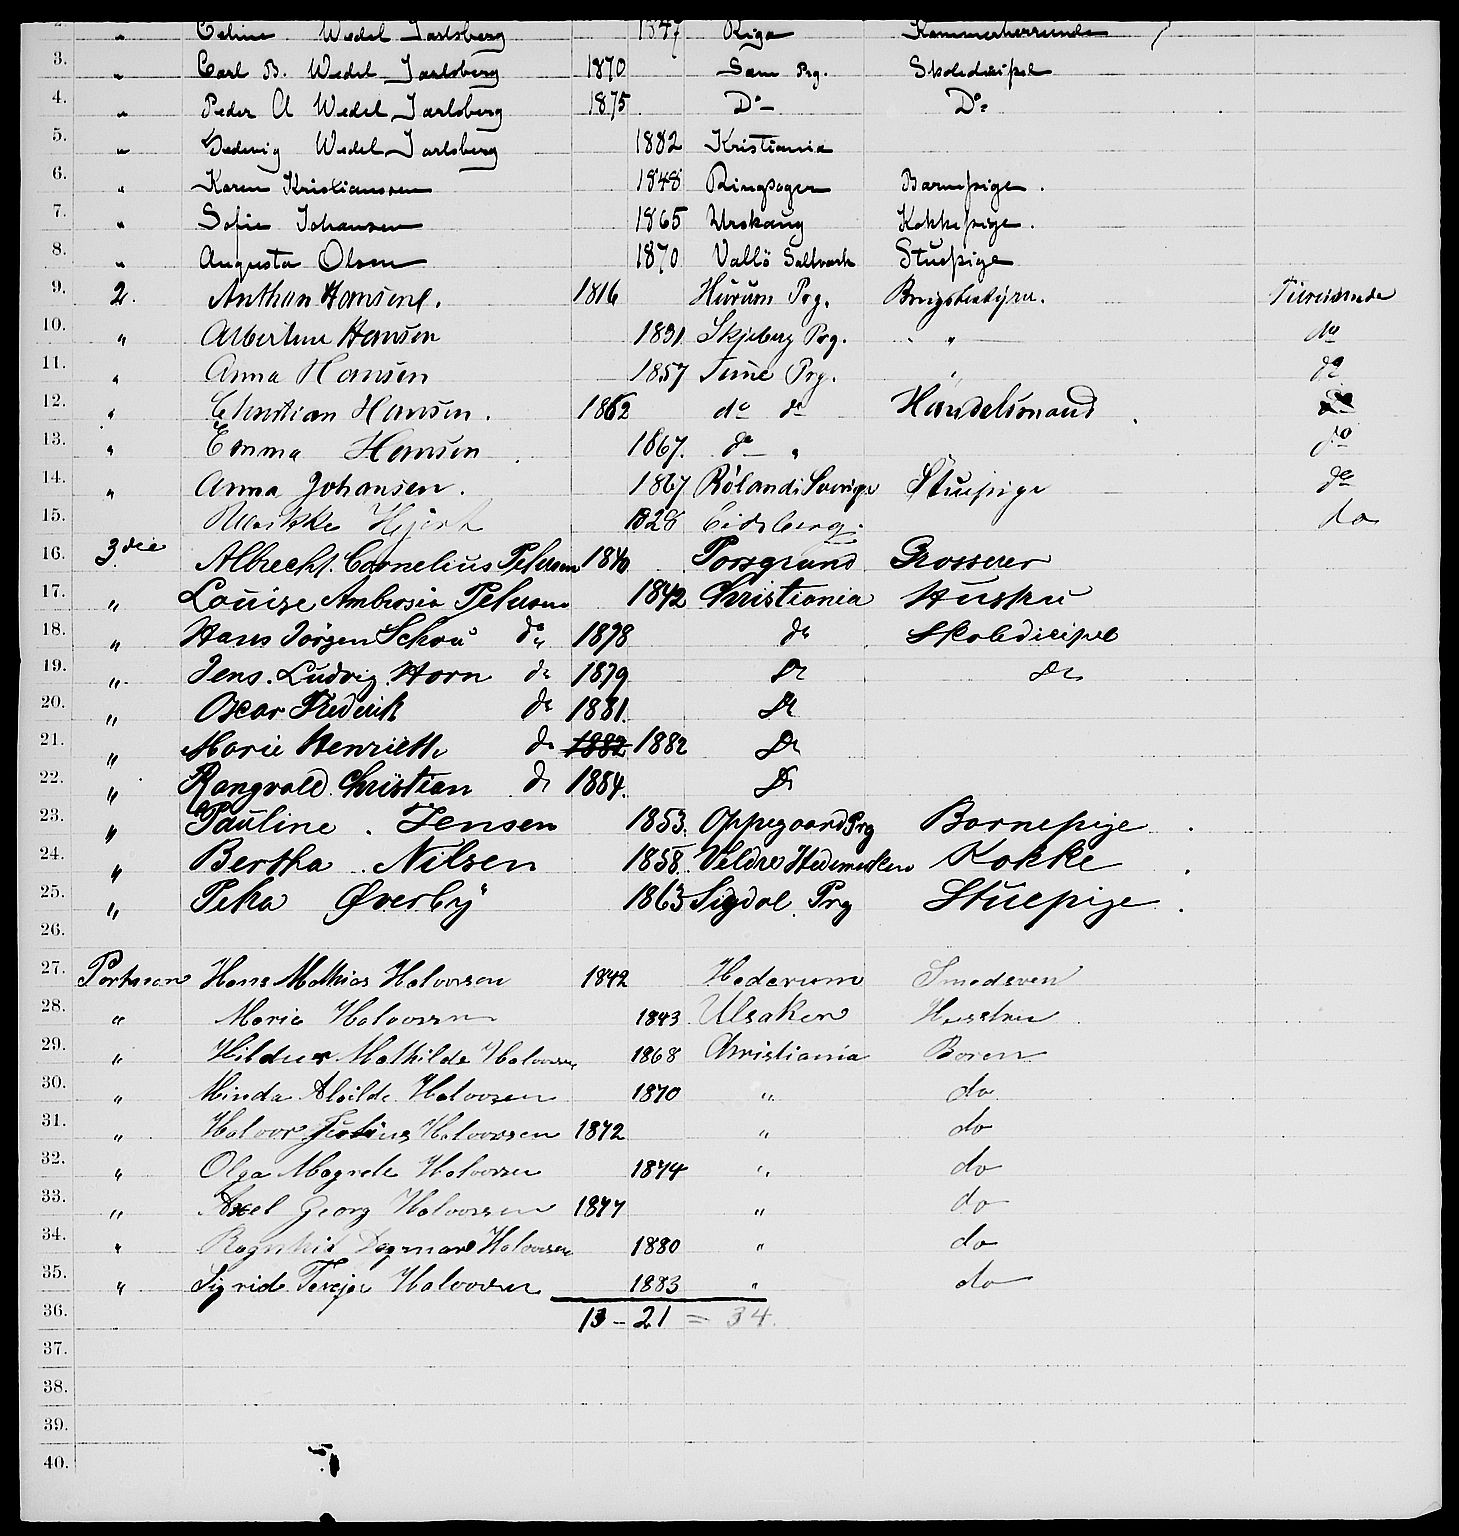 2. " Celine Wedel Jarlsberg 1847 Riga Kammerherreinde
3. " Carl B. Wedel Jarlsberg 1870 Sem Prg. Skoledicipel
4. " Peder A Wedel Jarlsberg 1875 Do Do
5. " Hedevig Wedel Jarlsberg 1882 Kristiania
6. " Karen Kristianssen 1848 Ringsager Barnepige.
7. " Sofie Johansen 1865 Urskaug Kokkepige.
8. " Augusta Olsen 1870 Vallö Saltværk Stuepige
9. 2. Anthon Hansene. 1816 Hurum Prg. Tilreisende
10. " Albertine Hansen 1831 Skjeberg Prg. " do
11. " Anna Hansen 1857 Tune Prg. " do
12. " Christian Hansen. 1862 do do Handelsmand
13. " Emma Hansen 1867. do " do
14. " Anna Johansen. 1867 Röland i Sverige Stuepige do
15. 1828 Eidsberg. do
16. 3die Albrecht Cornelius Petersen 1840 Porsgrund Grosserer
17. " Louise Ambrosia Petersen 1842 Christiania Hustru
18. " Hans Jörgen Schou do 1878 do Skoledicipel
19. " Jens Ludvig Horn do 1879 do do
20. " Oscar Frederik do 1881. do
21. " Marie Henriette do 1882 1882 do
22. " Rangvald Christian do 1884. do
23. " Pauline Jensen 1853. Oppegaard Prg Barnepige
24. " Bertha Nilsen 1858. Veldre Hedemarken Kokke
25. " Peka Øverby 1863 Sigdal Prg Stuepige
26.
27. Portneren Hans Mathias Halvorsen 1842 Hedarum Smedsven
28. " Marie Halvorsen 1843 Ulsaken Hustru
29. " Hildur Mathilde Halvorsen 1868 Christiania Boren
30. " Minda Alvilde Halvorsen 1870 " do
31. " Halvor Julius Halvorsen 1872 " do
32. " Olga Magrete Halvorsen 1874 " do
33. " Axel Georg Halvorsen 1877 " do
34. " Ragnhild Dagmare Halvorsen 1880 " do
35. " Sigride Halvorsen 1883 " do
36. 13 - 21 = 34.
37.
38.
39.
40.